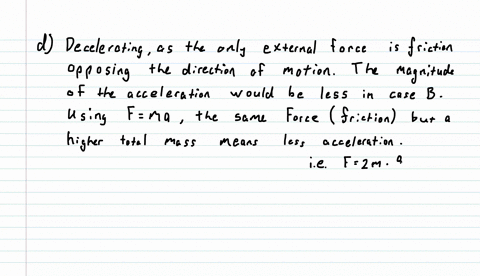 d) Decelerating, as the only external force is friction
opposing the direction of motion. The magnitude
of the acceleration would be less in case B.
Using F=ma, the same Force (friction) but a
higher total mass means less acceleration.
i.e. F=2m·a